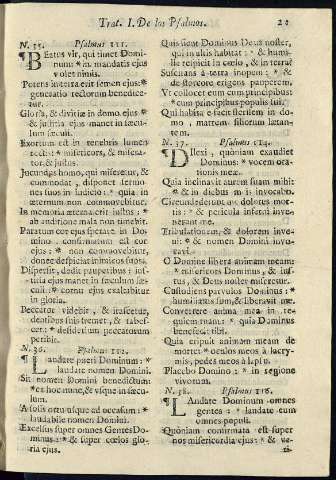 Trat. I. De los Psalmos.
N. 35. Psalmus 111.
¶BEatus vir, qui timet Domi-
num: * in mandatis ejus
volet nimis.
Potens in terra erit semen ejus: *
generatio rectorum benedice-
tur.
Gloria, & divitiæ in domo ejus: *
& justitia ejus manet in sæcu-
lum sæculi.
Exortum est in tenebris lumen
rectis: * misericors, & misera-
tor, & justus.
Jucundus homo, qui miseretur, &
commodat, disponet sermo-
nes suos in judicio: * quia in
æternum non commovebitur.
In memoria æterna erit justus: *
ab auditione mala non timebit.
Paratum cor ejus sperare in Do-
mino, confirmatum est cor
ejus: * non commovebitur,
donec despiciat inimicos suos.
Dispersit, dedit pauperibus: jus-
titia ejus manet in sæculum sæ-
culi: * cornu ejus exaltabitur
in gloria.
Peccator videbit, & irascetur,
dentibus suis fremet, & tabes-
cet: * desiderium peccatorum
peribit.
N. 36. Psalmus 112.
¶LAudate pueri Dominum: *
laudate nomen Domini.
Sit nomen Domini benedictum: *
ex hoc nunc, & usque in sæcu-
lum.
A solis ortu usque ad occasum: *
laudabile nomen Domini.
Excelsus super omnes Gentes Do-
minus: * & super cœlos glo-
ria ejus.
Quis sicut Dominus Deus noster,
qui in altis habitat: * & humi-
lia respicit in cœlo, & in terra?
Suscitans à terra inopem: * & de
stercore erigens pauperem.
Ut collocet eum cum principibus: *
cum principibus populi sui.
Qui habitare facit sterilem in do-
mo, * matrem filiorum lætan-
tem.
N. 37. Psalmus 114.
¶DIlexi, quoniam exaudiet
Dominus: * vocem ora-
tionis meæ.
Quia inclinavit aurem suam mihi: *
& in diebus meis invocabo.
Circumdederunt me dolores mor-
tis: * & pericula inferni inve-
nerunt me.
Tribulationem, & dolorem inve-
ni: * & nomen Domini invo-
cavi.
O Domine libera animam meam:
* misericors Dominus, & jus-
tus, & Deus noster miseretur.
Custodiens parvulos Dominus: *
humiliatus sum, & liberavit me.
Convertere anima mea in re-
quiem tuam: * quia Dominus
benefecit tibi.
Quia eripuit animam meam de
morte: * oculos meos à lacry-
mis, pedes meos à lapsu.
Placebo Domino: * in regione
vivorum.
N. 38. Psalmus 116.
¶LAudate Dominum omnes
gentes: * laudate eum
omnes populi.
Quoniam confirmata est super
nos misericordia ejus: * & ve-